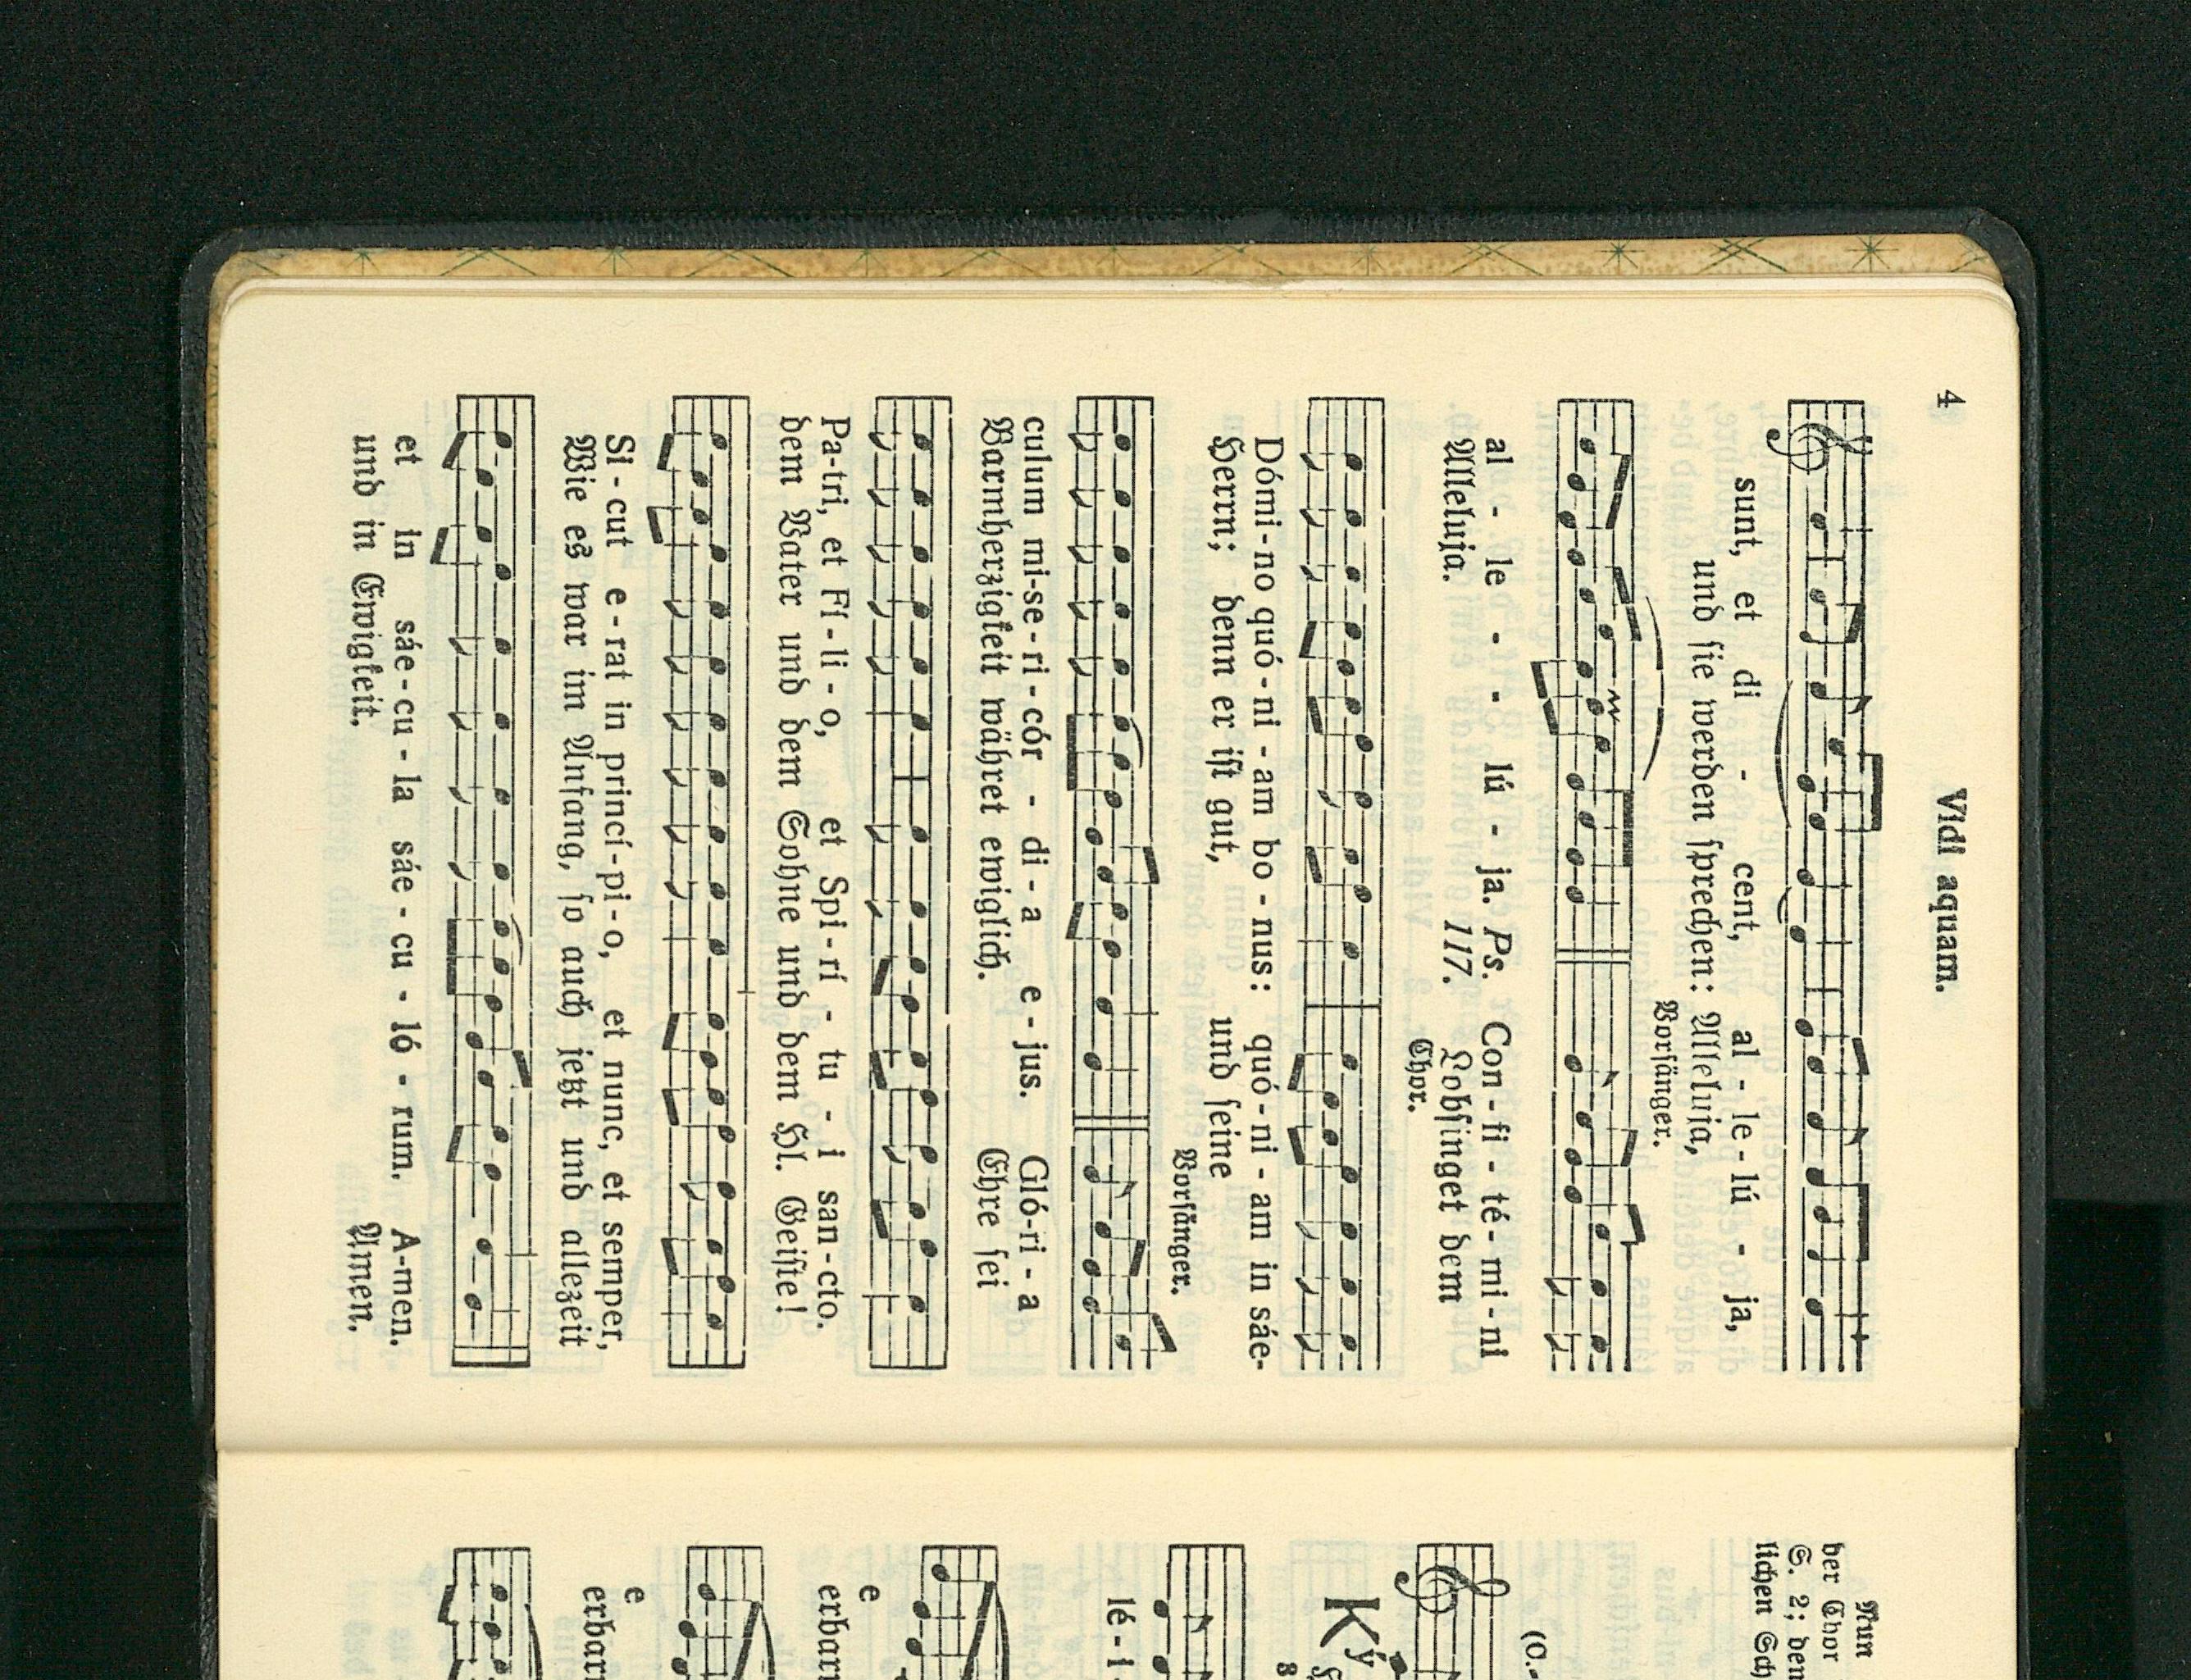 4
Vidi aquam.
sunt, et di - - cent, al - le - lú - ja,
und ſie werden ſprechen: Alleluja,
Vorſänger.
al - le - - lú - ja. Ps. Con - fi - té - mi - ni
Alleluja. 117. Lobſinget dem
Chor.
Dómi - no quó - ni - am bo - nus: quó - ni - am in sáe-
Herrn; denn er iſt gut, und ſeine
Vorſänger.
culum mi - se - ri - cór - di - a e - jus. Gló-ri - a
Barmherzigkeit währet ewiglich. Ehre ſei
Pa-tri, et Fí - li - o, et Spi - rí - tu - i san - cto.
dem Vater und dem Sohne und dem Hl. Geiſte!
Si - cut e - rat in princí - pi - o, et nunc, et semper,
Wie es war im Anfang, ſo auch jetzt und allezeit
et in sáe - cu - la sáe - cu - ló - rum. A-men.
und in Ewigkeit. Amen.
Nun
der Chor
S. 2; den
lichen Sch
(O.-
Ký
lé - i -
e
erbarm
e
erbarm